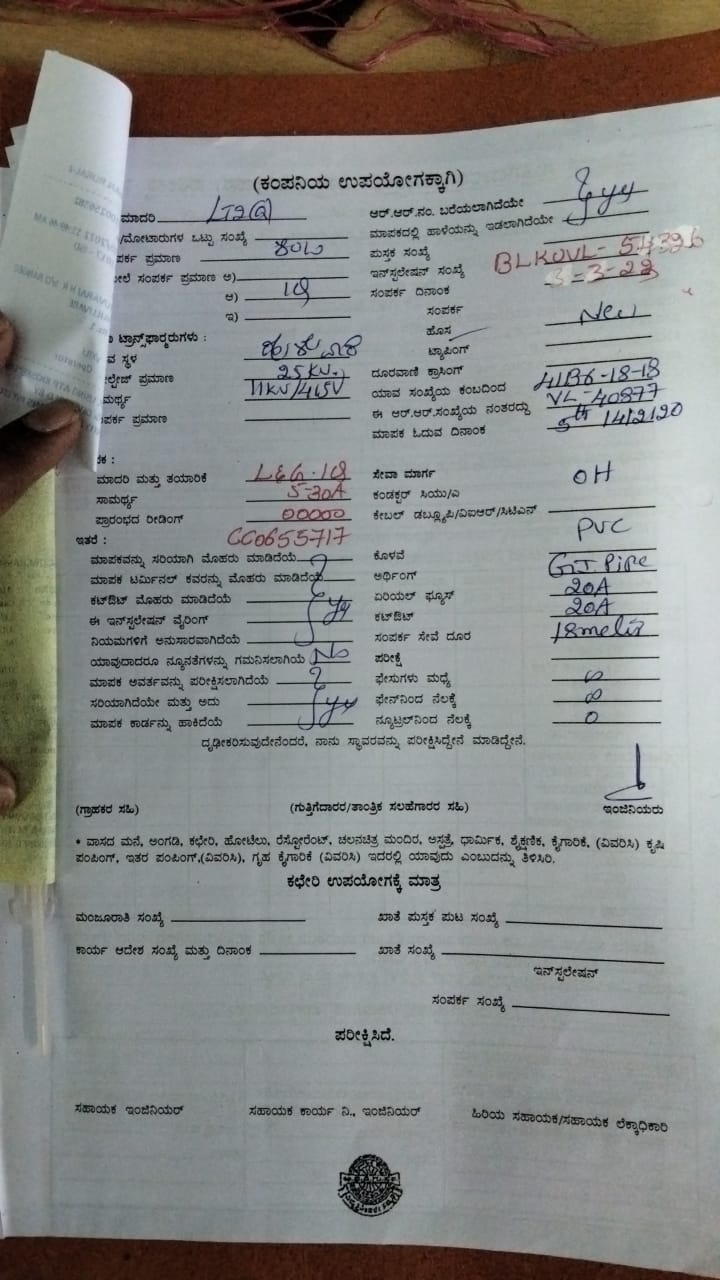 (ಕಂಪನಿಯ ಉಪಯೋಗಕ್ಕಾಗಿ)
ಮಾದರಿ LT2(a) ಆರ್.ಆರ್.ನಂ. ಬರೆಯಲಾಗಿದೆಯೇ
/ಮೋಟಾರುಗಳ ಒಟ್ಟು ಸಂಖ್ಯೆ ಮಾಪಕದಲ್ಲಿ ಹಾಳೆಯನ್ನು ಇಡಲಾಗಿದೆಯೇ
ಪರ್ಕ ಪ್ರಮಾಣ ಪುಸ್ತಕ ಸಂಖ್ಯೆ
ಲೆ ಸಂಪರ್ಕ ಪ್ರಮಾಣ ಅ) ಇನ್‌ಸ್ಟಲೇಷನ್ ಸಂಖ್ಯೆ BLKUVL-54326
ಆ) 1ϕ ಸಂಪರ್ಕ ದಿನಾಂಕ 3-3-22
ಇ) ಸಂಪರ್ಕ
ಹೊಸ New
ಟ್ರಾನ್ಸ್‌ಫಾರ್ಮರುಗಳು : ಟ್ಯಾಪಿಂಗ್
ವ ಸ್ಥಳ ದೂರವಾಣಿ ಕ್ರಾಸಿಂಗ್
ಲ್ಟೇಜ್ ಪ್ರಮಾಣ 25KV. ಯಾವ ಸಂಖ್ಯೆಯ ಕಂಬದಿಂದ 41B6-18-18
ಮರ್ಥ್ಯ 11KV/415V ಈ ಆರ್.ಆರ್.ಸಂಖ್ಯೆಯ ನಂತರದ್ದು VL-40877
ಪರ್ಕ ಪ್ರಮಾಣ ಮಾಪಕ ಓದುವ ದಿನಾಂಕ 5th 14/2/20
ಕ :
ಮಾದರಿ ಮತ್ತು ತಯಾರಿಕೆ L&G-1ϕ ಸೇವಾ ಮಾರ್ಗ OH
ಸಾಮರ್ಥ್ಯ 5-30A ಕಂಡಕ್ಟರ್ ಸಿಯು/ಎ
ಪ್ರಾರಂಭದ ರೀಡಿಂಗ್ 00000 ಕೇಬಲ್ ಡಬ್ಲ್ಯೂಪಿ/ವಿಐಆರ್/ಸಿಟಿಎಸ್ PVC
ಇತರೆ : CC0655717
ಮಾಪಕವನ್ನು ಸರಿಯಾಗಿ ಮೊಹರು ಮಾಡಿದೆಯೆ ಕೊಳವೆ GI. Pipe
ಮಾಪಕ ಟರ್ಮಿನಲ್ ಕವರನ್ನು ಮೊಹರು ಮಾಡಿದೆಯೆ ಅರ್ಥಿಂಗ್
ಕಟ್‌ಔಟ್ ಮೊಹರು ಮಾಡಿದೆಯೆ ಏರಿಯಲ್ ಫ್ಯೂಸ್ 20A
ಈ ಇನ್‌ಸ್ಟಲೇಷನ್ ವೈರಿಂಗ್ ಕಟ್‌ಔಟ್ 20A
ನಿಯಮಗಳಿಗೆ ಅನುಸಾರವಾಗಿದೆಯೆ ಸಂಪರ್ಕ ಸೇವೆ ದೂರ 18
ಯಾವುದಾದರೂ ನ್ಯೂನತೆಗಳನ್ನು ಗಮನಿಸಲಾಗಿಯೆ No ಪರೀಕ್ಷೆ
ಮಾಪಕ ಅವರ್ತವನ್ನು ಪರೀಕ್ಷಿಸಲಾಗಿದೆಯೆ ಫೇಸುಗಳು ಮಧ್ಯೆ ∞
ಸರಿಯಾಗಿದೆಯೇ ಮತ್ತು ಅದು ಫೇಸ್‌ನಿಂದ ನೆಲಕ್ಕೆ ∞
ಮಾಪಕ ಕಾರ್ಡನ್ನು ಹಾಕಿದೆಯೆ ನ್ಯೂಟ್ರಲ್‌ನಿಂದ ನೆಲಕ್ಕೆ 0
ದೃಢೀಕರಿಸುವುದೇನೆಂದರೆ, ನಾನು ಸ್ಥಾವರವನ್ನು ಪರೀಕ್ಷಿಸಿದ್ದೇನೆ ಮಾಡಿದ್ದೇನೆ.
(ಗ್ರಾಹಕರ ಸಹಿ) (ಗುತ್ತಿಗೆದಾರರ/ತಾಂತ್ರಿಕ ಸಲಹೆಗಾರರ ಸಹಿ) ಇಂಜಿನಿಯರು
* ವಾಸದ ಮನೆ, ಅಂಗಡಿ, ಕಛೇರಿ, ಹೋಟೆಲು, ರೆಸ್ಟೋರೆಂಟ್, ಚಲನಚಿತ್ರ ಮಂದಿರ, ಅಸ್ಪತ್ರೆ, ಧಾರ್ಮಿಕ, ಶೈಕ್ಷಣಿಕ, ಕೈಗಾರಿಕೆ, (ವಿವರಿಸಿ) ಕೃಷಿ
ಪಂಪಿಂಗ್, ಇತರ ಪಂಪಿಂಗ್,(ವಿವರಿಸಿ), ಗೃಹ ಕೈಗಾರಿಕೆ (ವಿವರಿಸಿ) ಇದರಲ್ಲಿ ಯಾವುದು ಎಂಬುದನ್ನು ತಿಳಿಸಿರಿ.
ಕಛೇರಿ ಉಪಯೋಗಕ್ಕೆ ಮಾತ್ರ
ಮಂಜೂರಾತಿ ಸಂಖ್ಯೆ ಖಾತೆ ಪುಸ್ತಕ ಪುಟ ಸಂಖ್ಯೆ
ಕಾರ್ಯ ಆದೇಶ ಸಂಖ್ಯೆ ಮತ್ತು ದಿನಾಂಕ ಖಾತೆ ಸಂಖ್ಯೆ
ಇನ್‌ಸ್ಟಲೇಷನ್
ಸಂಪರ್ಕ ಸಂಖ್ಯೆ
ಪರೀಕ್ಷಿಸಿದೆ.
ಸಹಾಯಕ ಇಂಜಿನಿಯರ್ ಸಹಾಯಕ ಕಾರ್ಯ ನಿ., ಇಂಜಿನಿಯರ್ ಹಿರಿಯ ಸಹಾಯಕ/ಸಹಾಯಕ ಲೆಕ್ಕಾಧಿಕಾರಿ